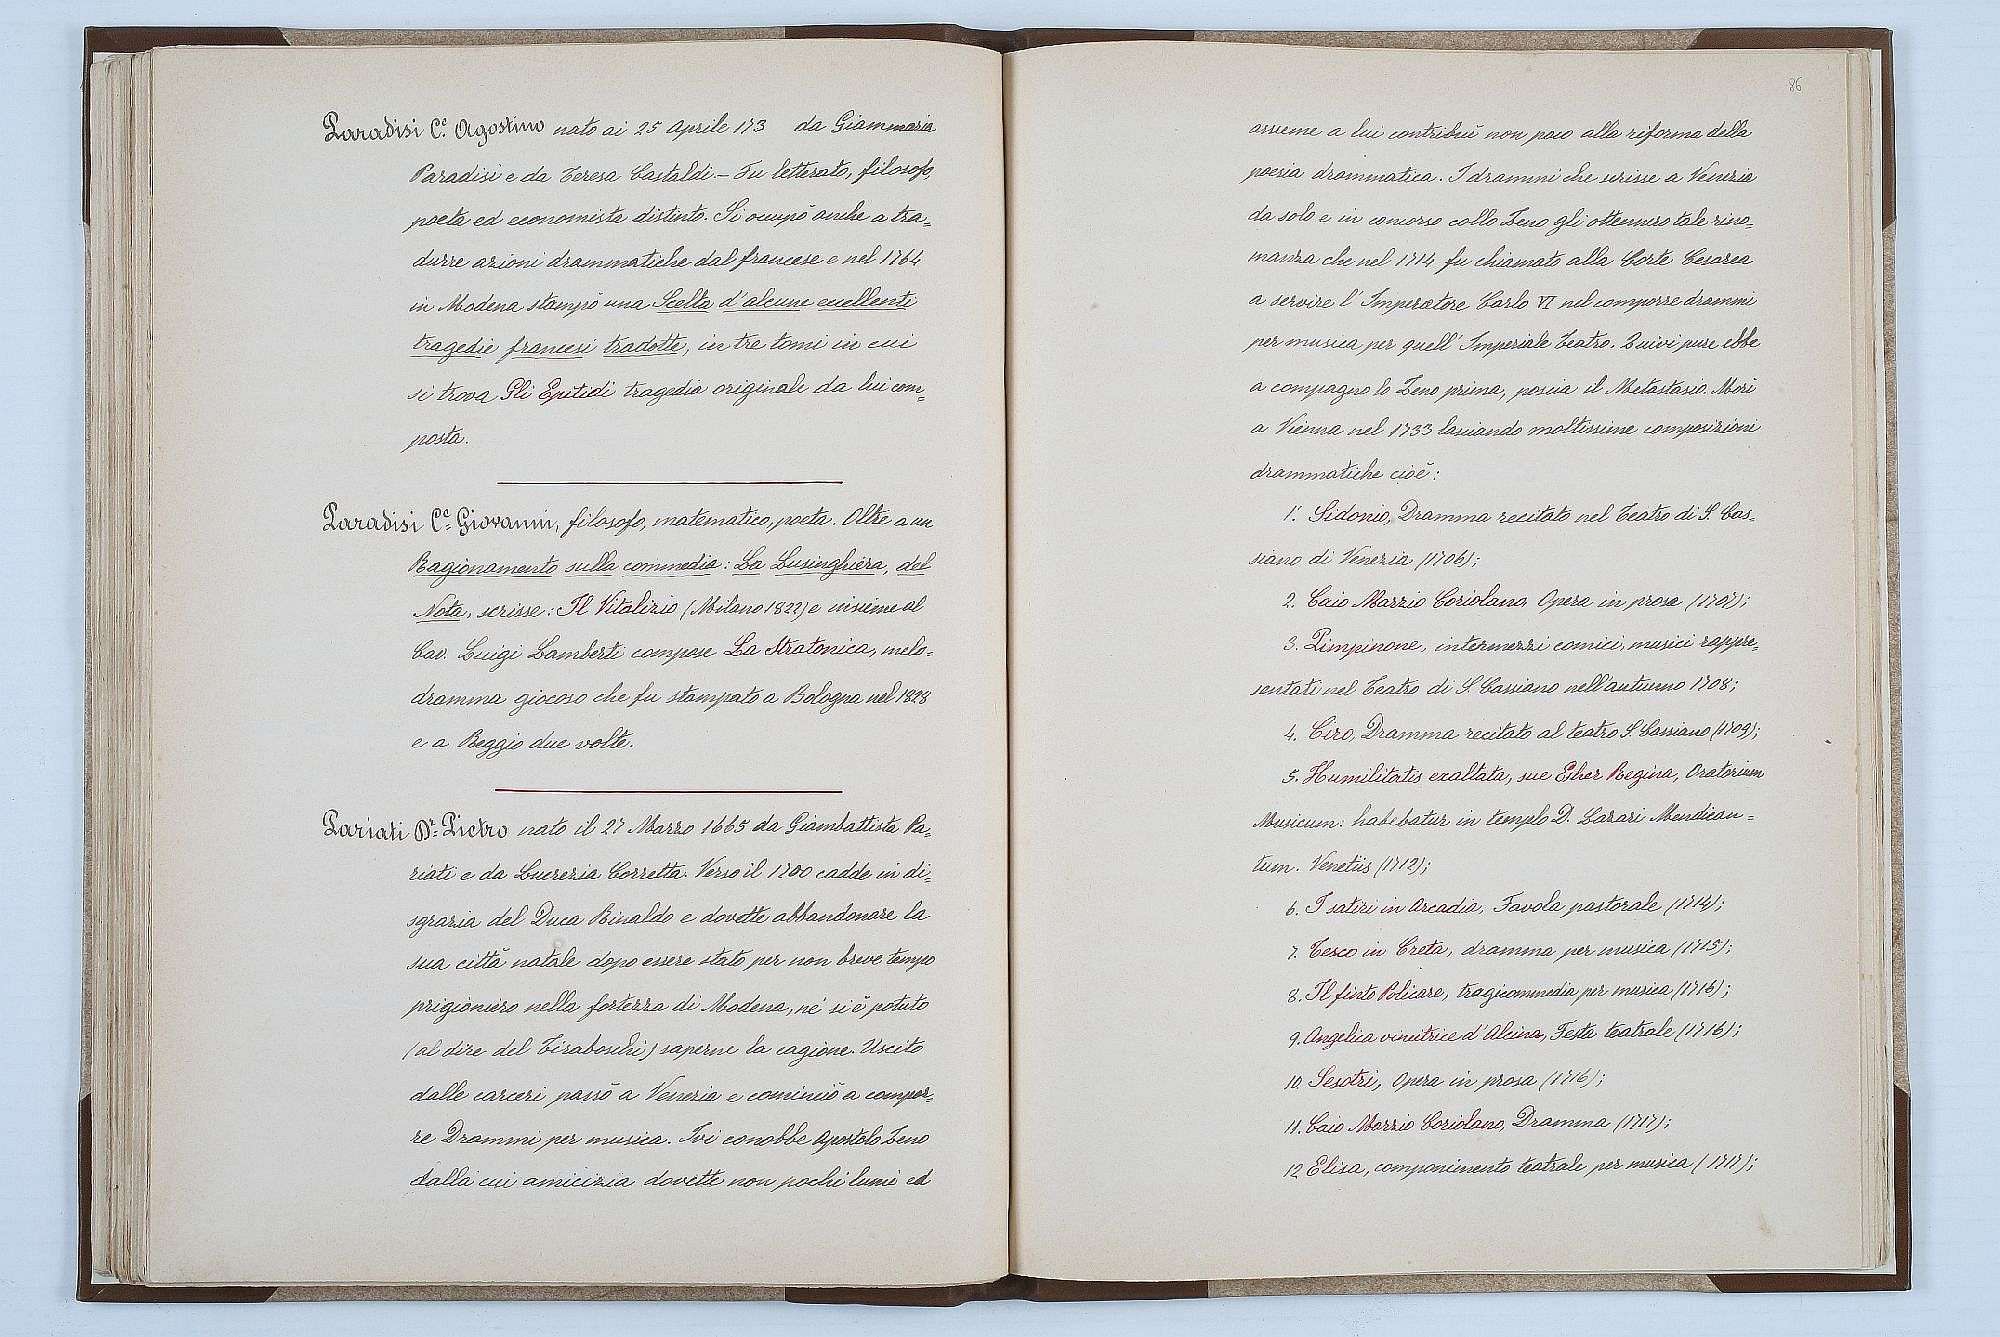 Paradisi C.e Agostino nato ai 25 Aprile 173 da Giammaria
Paradisi e da Teresa Castaldi – Fu letterato, filosofo,
poeta ed economista distinto. Si occupò anche a tra=
durre azioni drammatiche dal francese e nel 1764
in Modena stampò una Scelta d'alcune eccellenti
tragedie francesi tradotte, in tre tomi in cui
si trova Gli Epitidi tragedia originale da lui com=
posta.
Paradisi C.e Giovanni, filosofo, matematico, poeta. Oltre a un
Ragionamento sulla commedia: La Lusinghiera, del
Nota, scrisse: Il Vitalizio (Milano 1822) e insieme al
Cav. Luigi Lamberti compose La Stratonica, melo=
dramma giocoso che fu stampato a Bologna nel 1828
e a Reggio due volte.
Pariati Dr. Pietro nato il 27 Marzo 1665 da Giambattista Pa=
riati e da Lucrezia Corretta. Verso il 1700 cadde in di=
sgrazia del Duca Rinaldo e dovette abbandonare la
sua città natale dopo essere stato per non breve tempo
prigioniero nella fortezza di Modena, nè si è potuto
(al dire del Tiraboschi) saperne la cagione. Uscito
dalle carceri passò a Venezia e cominciò a compor=
re Drammi per musica. Ivi conobbe Apostolo Zeno
dalla cui amicizia dovette non pochi lumi ed
86
assieme a lui contribuì non poco alla riforma della
poesia drammatica. I drammi che scrisse a Venezia
da solo e in concorso collo Zeno gli ottennero tale rino=
manza che nel 1714 fu chiamato alla Corte Cesarea
a servire l'Imperatore Carlo VI nel comporre drammi
per musica per quell'Imperiale Teatro. Quivi pure ebbe
a compagno lo Zeno prima, poscia il Metastasio. Morì
a Vienna nel 1733 lasciando moltissime composizioni
drammatiche cioè:
1. Sidonio, Dramma recitato nel Teatro di S. Cas=
siano di Venezia (1706);
2. Caio Marzio Coriolano Opera in prosa (1707);
3. Pimpinone, intermezzi comici, musici rappre=
sentati nel Teatro di S. Cassiano nell'autunno 1708;
4. Ciro, Dramma recitato al teatro S. Cassiano (1709);
5. Humilitatis exaltata, sue Esher Regina, Oratorium
Musicum: habebatur in templo D. Lazari Mendican=
tum. Venetiis (1712);
6. I satiri in Arcadia, Favola pastorale (1714);
7. Teseo in Creta, dramma per musica (1715);
8. Il finto Policare, tragicommedia per musica (1716);
9. Angelica vincitrice d'Alcina, Festa teatrale (1716);
10. Sesotri, Opera in prosa (1716);
11. Caio Marzio Coriolano, Dramma (1717);
12. Elisa, componimento teatrale per musica (1717);